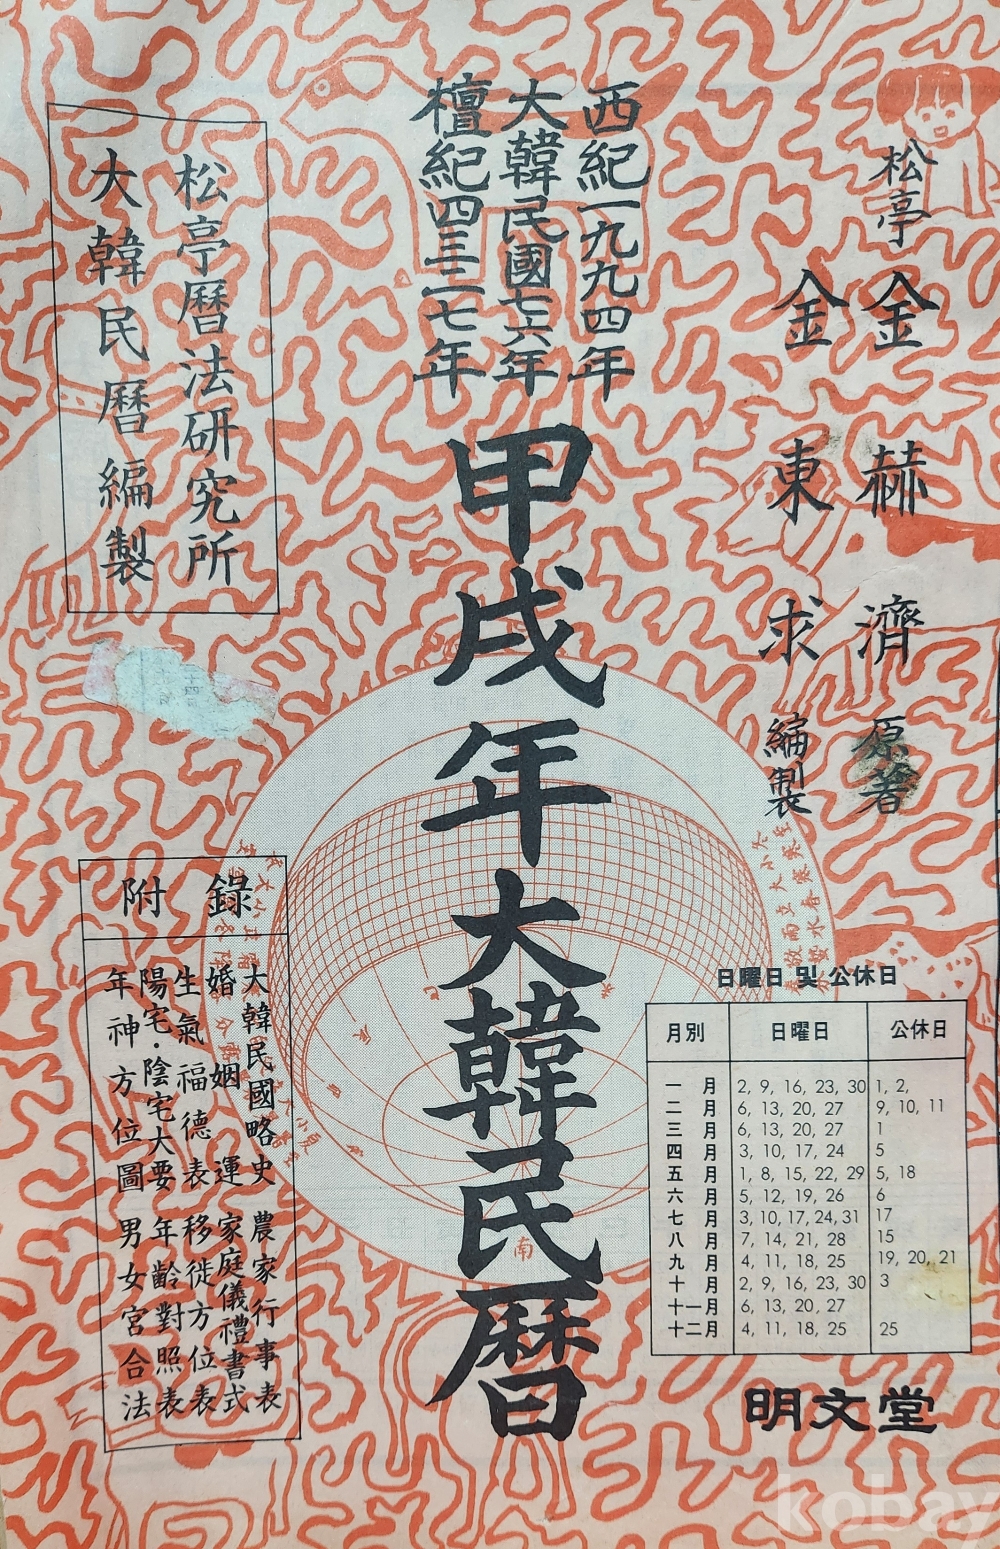 松亭 金赫濟 原著
金東求 編製
西紀一九九四年
大韓民國七六年
檀紀四三二七年
甲戌年大韓民曆
松亭曆法研究所
大韓民曆編製
附錄
大韓民國略史 農家行事表
婚姻運 家庭儀禮書式
生氣福德表 移徙方位表
陽宅·陰宅大要 年齡對照表
年神方位圖 男女宮合法
南
日曜日 및 公休日
月別 日曜日 公休日
一月 2, 9, 16, 23, 30 1, 2,
二月 6, 13, 20, 27 9, 10, 11
三月 6, 13, 20, 27 1
四月 3, 10, 17, 24 5
五月 1, 8, 15, 22, 29 5, 18
六月 5, 12, 19, 26 6
七月 3, 10, 17, 24, 31 17
八月 7, 14, 21, 28 15
九月 4, 11, 18, 25 19, 20, 21
十月 2, 9, 16, 23, 30 3
十一月 6, 13, 20, 27
十二月 4, 11, 18, 25 25
明文堂
kobay